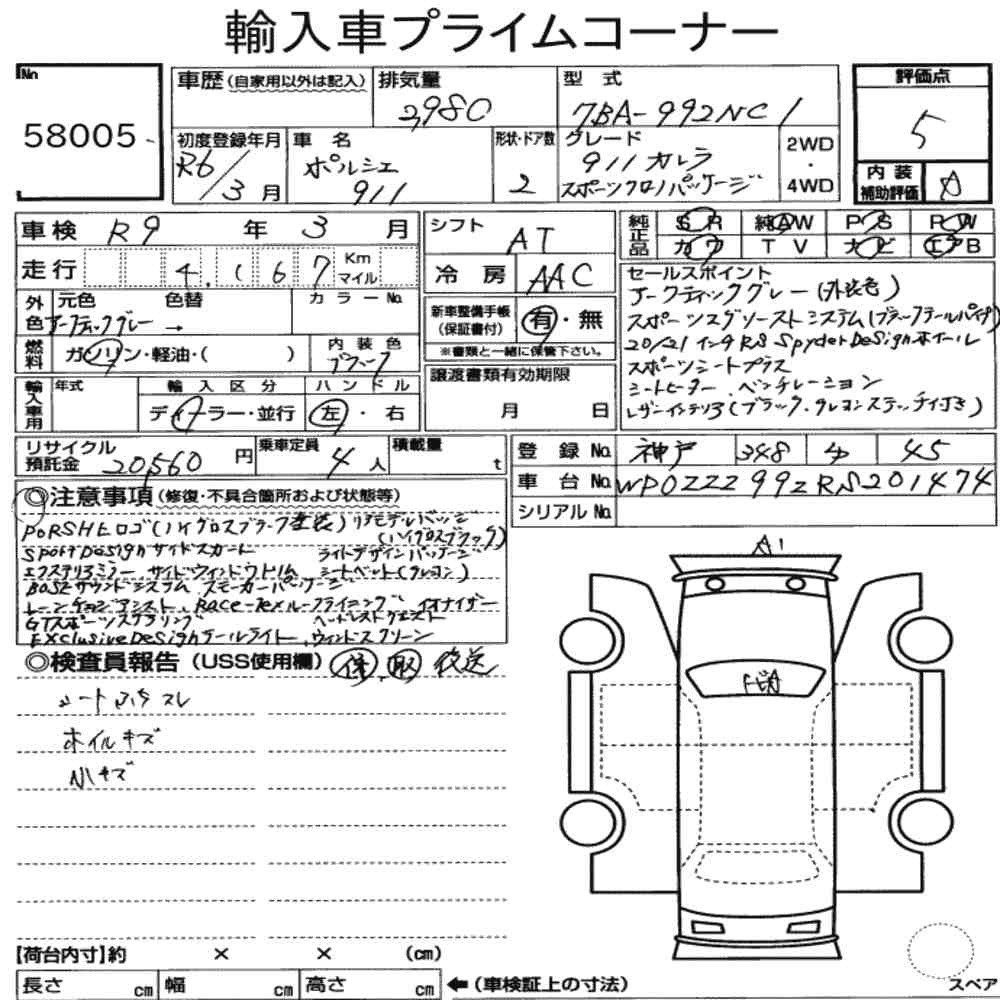 輸入車プライムコーナー
No
58005
車歴 (自家用以外は記入)
排気量
2,980
型式
7BA-992NC1
評価点
5
初度登録年月
R6/3月
車名
ポルシェ
911
形状・ドア数
2
グレード
911 カレラ
スポーツクロノパッケージ
2WD
・
4WD
内装
補助評価
A
車検 R9 年 3 月
シフト
AT
純正品
SR 純AW PS PW
カワ TV ナビ エアB
走行
4,167
Km
マイル
冷房
AAC
セールスポイント
アークティックグレー (外装色)
スポーツエグゾーストシステム (ブラックテールパイプ)
20/21インチRS Spyder Designホイール
スポーツシートプラス
シートヒーター、ベンチレーション
レザーインテリア (ブラック、クレヨンステッチ付き)
外色
元色 色替
アークティックグレー →
カラーNo.
新車整備手帳
(保証書付)
有・無
※書類と一緒に保管下さい。
燃料
ガソリン・軽油・( )
内装色
ブラック
譲渡書類有効期限
月 日
輸入車用
年式
輸入区分
ディーラー・並行
ハンドル
左・右
リサイクル
預託金
20,560 円
乗車定員
4 人
積載量
t
登録No. 神戸 348 45
車台No. WP0ZZZ99ZRS201474
シリアルNo.
◎注意事項 (修復・不具合箇所および状態等)
PORSHEロゴ (ハイグロスブラック塗装) リアモデルバッジ
(ハイグロスブラック)
Sport Designサイドスカート ライトデザインパッケージ
エクステリアミラー サイドウインドウトリム シートベルト (クレヨン)
BOSEサウンドシステム スモーカーパッケージ
レーンチェンジアシスト、Race-Texルーフライニング イオナイザー
GTスポーツステアリング ヘッドレストクエスト
Exclusive Designテールライト、ウィンドスクリーン
◎検査員報告 (USS使用欄) 保 取 後送
シート スレ
ホイルキズ
小キズ
A1
【荷台内寸】約 × × (cm)
長さ cm 幅 cm 高さ cm
←(車検証上の寸法)
スペア